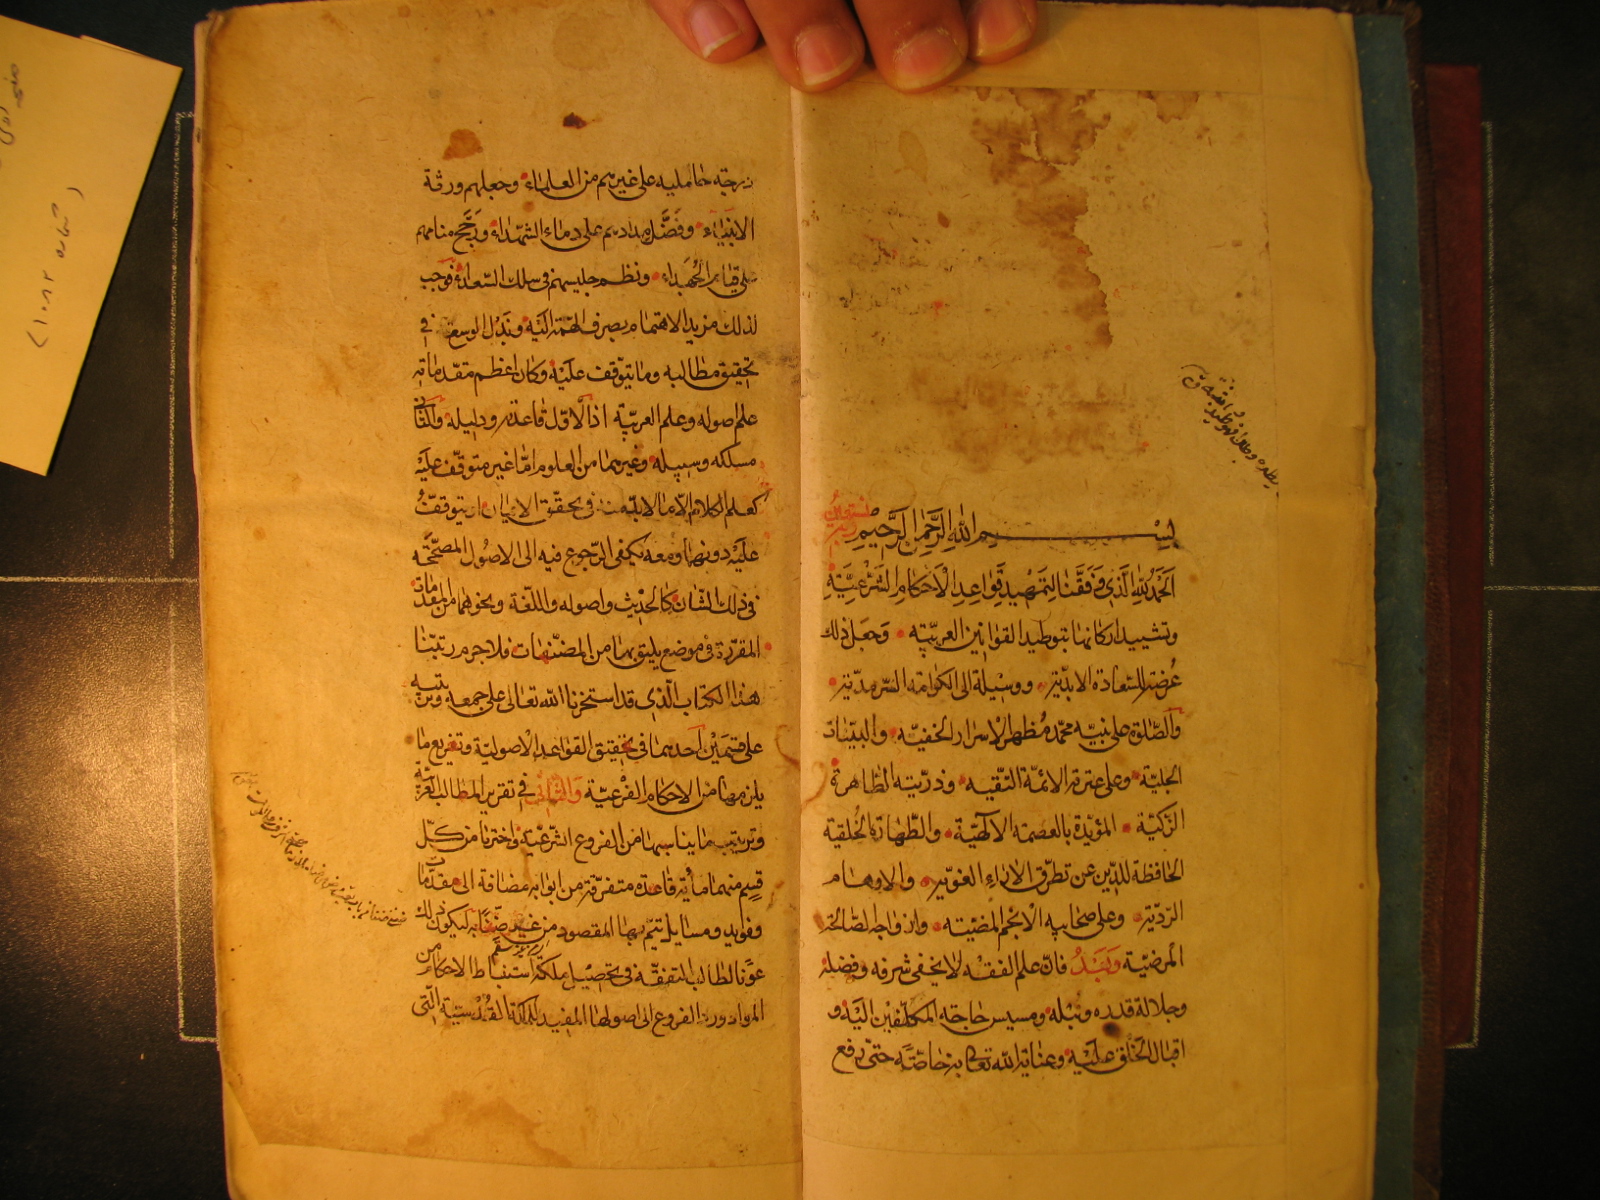 بسم الله الرحمن الرحيم
نستعين
الحمد لله الذي وفقنا لتمهيد قواعد الاحكام الشرعية
وتشييد اركانها بتوطيد القوانين العربية وجعل ذلك
عرضة للسعادة الابدية ووسيلة الى الكرامة السرمدية
والصلوة على نبيه محمد مظهر الاسرار الخفية والبينات
الجلية وعلى عترته الائمة التقية وذريته الطاهرة
الزكية المؤيدة بالعصمة الالهية والطهارة الخلقية
الحافظة للدين عن تطرق الاراء الغوية والاوهام
الردية وعلى صحابيه الانجم المضيئة وازواجه الصالحة
المرضية وبعد فان علم الفقه لا يخفى شرفه وفضله
وجلالة قدره ونبله ومسيس حاجة المكلفين اليه و
اقبال الخلق عليه وعناية الله تعالى به خاصة حتى رفع
درجة حامليه على غيرهم من العلماء وجعلهم ورثة
الانبياء وفضل مدادهم على دماء الشهداء ورجح منامهم
على قيام الجهداء ونظم جليسهم في سلك السعداء فوجب
لذلك مزيد الاهتمام بصرف الهمة اليه وبذل الوسع في
تحقيق مطالبه وما يتوقف عليه وكان اعظم مقدماته
علم اصوله وعلم العربية اذ الاول قاعدته ودليله والثاني
مسلكه وسبيله وغيرهما من العلوم اما غير متوقف عليه
كعلم الكلام الا ما لابد منه في تحقق الايمان او يتوقف
عليه دونهما ومعه يكفى الرجوع فيه الى الاصول المصححة
في ذلك الشان كالحديث واصوله واللغة ونحوهما من المقدمات
المقررة في موضع يليق بها من المصنفات فلا جرم رتبنا
هذا الكتاب الذي قد استخرنا الله تعالى على جمعه وترتيبه
على قسمين احدهما في تحقيق القواعد الاصولية وتفريع ما
يلزمها من الاحكام الفرعية والثاني في تقرير المطالب العربية
وترتيب ما يناسبها من الفروع الشرعية واخترنا من كل
قسم منهما مائة قاعدة متفرقة من ابوابه مضافة الى مقدمات
وفوايد ومسايل يتم بها المقصود من غير ليكون ذلك
عونا لطالب التفقه في تحصيل ملكة استنباط الاحكام من
الموارد ورد الفروع الى اصولها المفيد للملكة القدسية التي
(شماره ١٠٨٢)